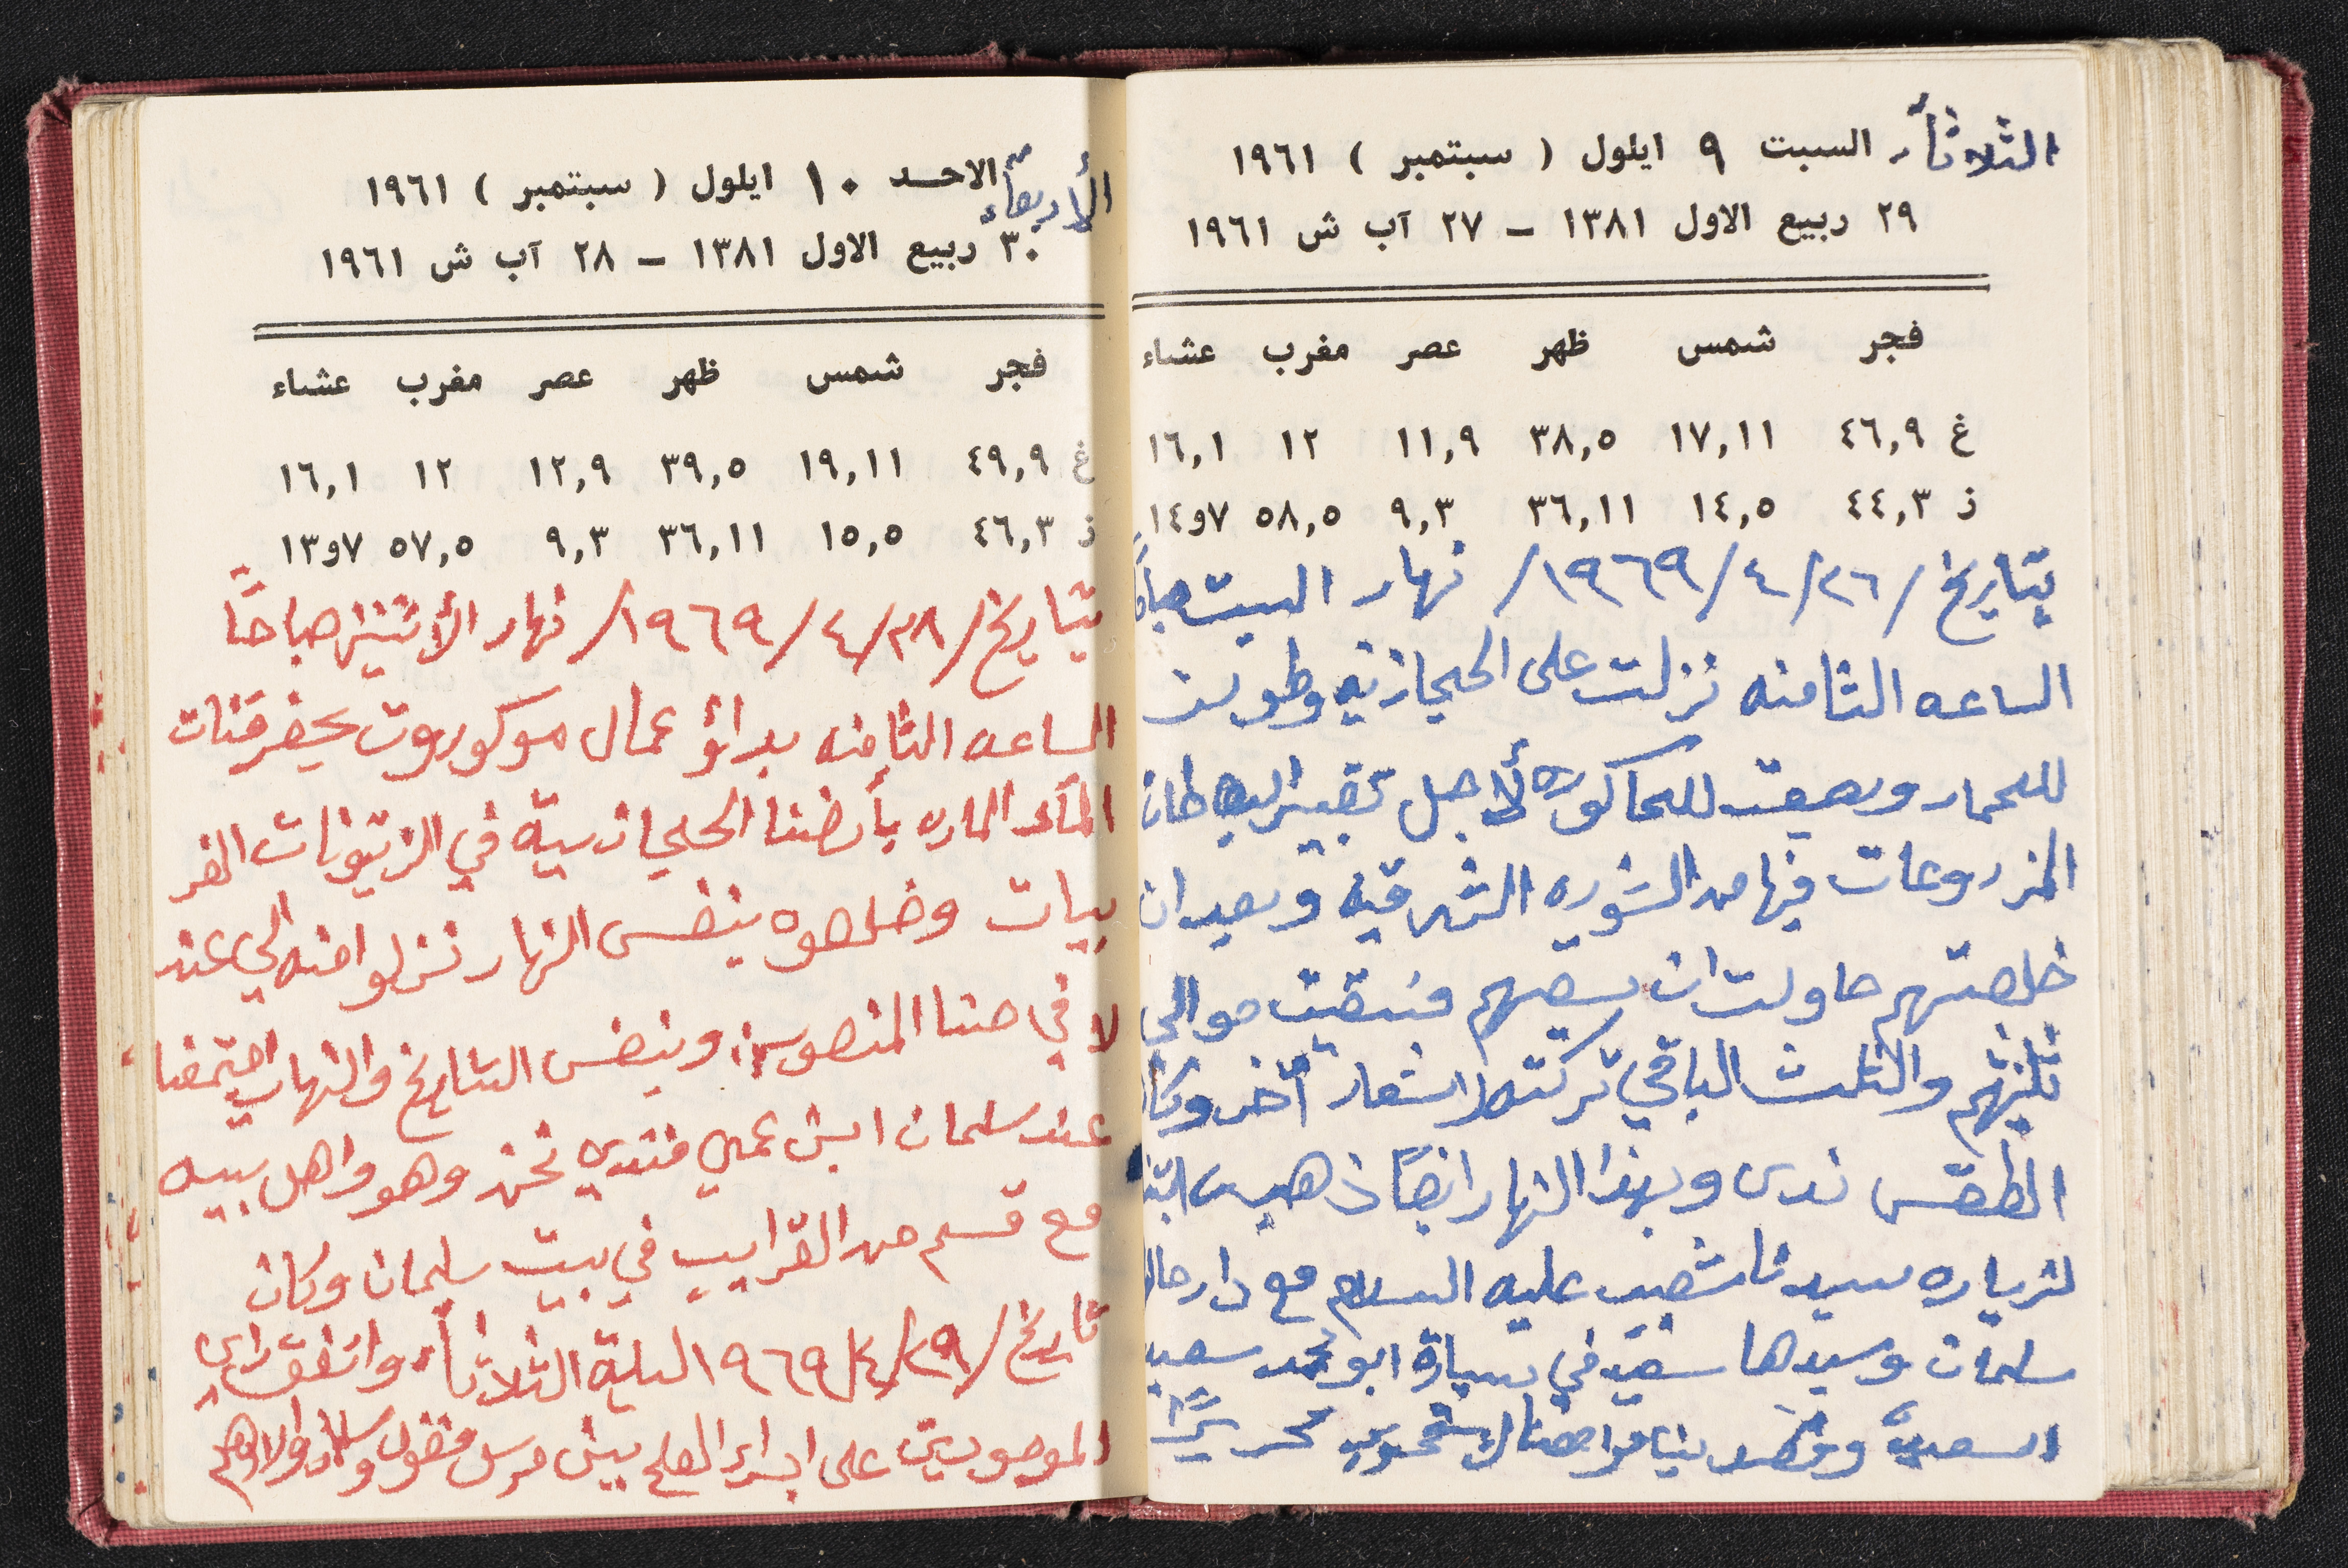 الثلاثاء السبت ٩ ايلول ( سبتمبر ) ١٩٦١
٢٩ ربيع الاول ١٣٨١ – ٢٧ آب ش ١٩٦١
فجر شمس ظهر عصر مغرب عشاء
غ ٤٦,٩ ١٧,١١ ٣٨,٥ ١١,٩ ١٢ ١٦,١
ز ٤٤,٣ ١٤,٥ ٣٦,١١ ٩,٣ ٥٨,٥ ٧و١٤
بتاريخ /٢٦/٤/١٩٦٩/ نهار السبت صباحاً
الساعه الثامنه نزلت على الحيجازيه وطولت
للحمار ورجعت للحاكوره لأجل تقبير البطاطا
المزروعات فيها من الشوره الشرقيه وبعد ان
خلصتهم حاولت ان بسقيهم فسقيت حوالي
ثلثيهم والثلث الباقي تركته لاشعار آخر وكان
الطقس ندى وبهذا النهار ايضاً ذهبت
لزياره سيدنا شعيب عليه السلام مع دار خالها
سلمان وسيدها سعيد في سيارة ابو محمد سعيد
السعدي وقصدينا
الأربعاء الاحد ١٠ ايلول ( سبتمبر ) ١٩٦١
٣٠ ربيع الاول ١٣٨١ – ٢٨ آب ش ١٩٦١
فجر شمس ظهر عصر مغرب عشاء
غ ٤٩,٩ ١٩,١١ ٣٩,٥ ١٢,٩ ١٢ ١٦,١
ز ٤٦,٣ ١٥,٥ ٣٦,١١ ٩,٣ ٥٧,٥ ٧و١٣
بتاريخ/٢٨/٤/١٩٦٩/ نهار الأثنين صباحاً
الساعه الثامنه بدائو عمال موكوروت بحفر قنات
الماء الماره بأرضنا الحيجازيية في الزيتونات الغر
بيات وخلصوه بنفس النهار نزلوا منه الى عند
لافي حنا المنصور وبنفس التاريخ والنهار اجتمعنا
عند سلمان ابن عمي فندي نحن وهو واهل بييه
مع قسم من القرايب في بيت سليمان وكان
تاريخ/٢٩/٤/١٩٦٩ اليلة الثلاثاء واتفق راي
الموجودين على اجراء الصلح بين مرسل واولادهم